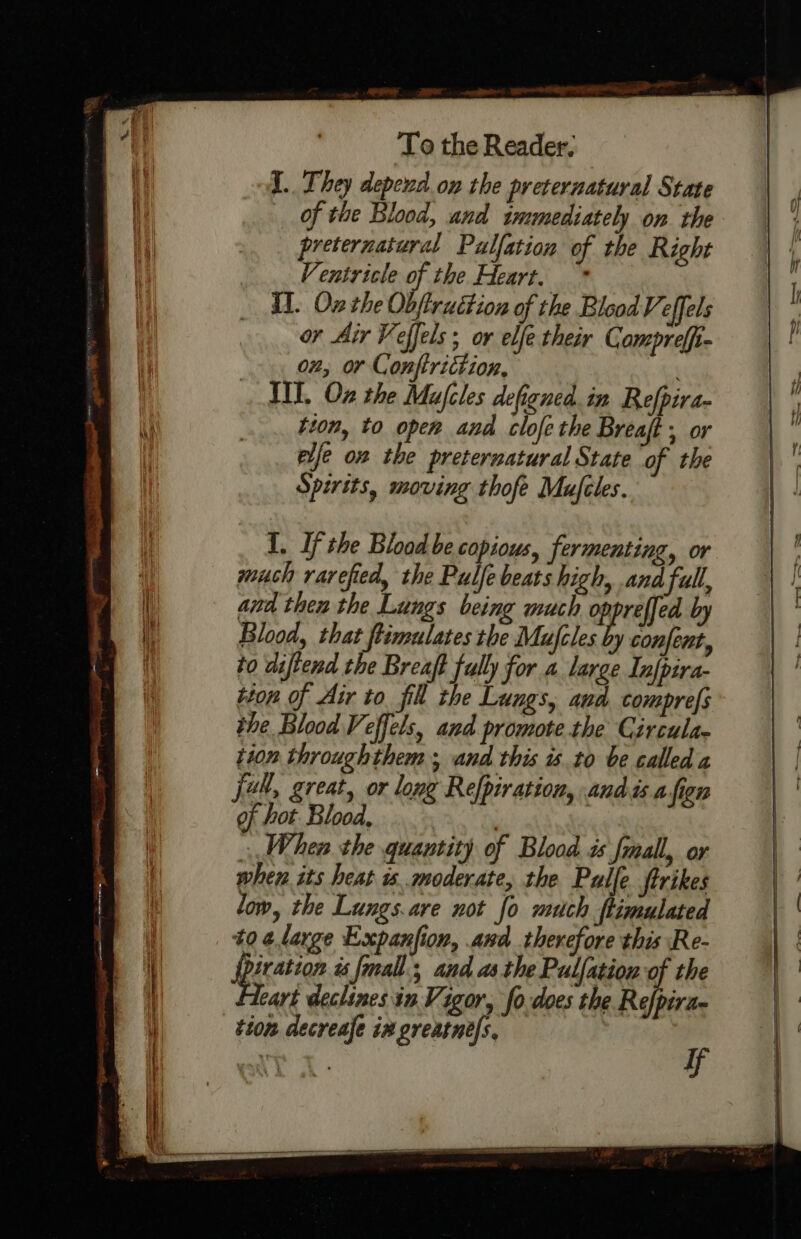 To the Reader.
I. They depend on the preternatural State
of the Blood, and immediately on the
preternatural Pulſation of the Right
Ventricle of the Heart.
II. On the Obſtruction of the Blood Veſſels
or Air Veſſels; or elſe their Compreſſi-
on, or Conſtriction.
III. On the Muſcles deſigned in Reſpira-
tion, to open and cloſe the Breaſt; or
elſe on the preternatural State of the
Spirits, moving thoſe Muſcles.
I. If the Blood be copious, fermenting, or
much rarefied, the Pulſe beats high, and full,
and then the Lungs being much oppreſſed by
Blood, that ſtimulates the Muſcles by conſent,
to diſtend the Breaſt fully for a large Inſpira-
tion of Air to fill the Lungs, and compreſs
the Blood Veſſels, and promote the Circula-
tion through them; and this is to be called a
full, great, or long Reſpiration, and is a ſign
of hot Blood.
When the quantity of Blood is ſmall, or
when its heat is moderate, the Pulſe ſtrikes
low, the Lungs are not ſo much ſtimulated
to a large Expanſion, and therefore this Re-
ſpiration is ſmall; and as the Pulſation of the
Heart declines in Vigor, ſo does the Reſpira-
tion decreaſe in greatneſs.
If